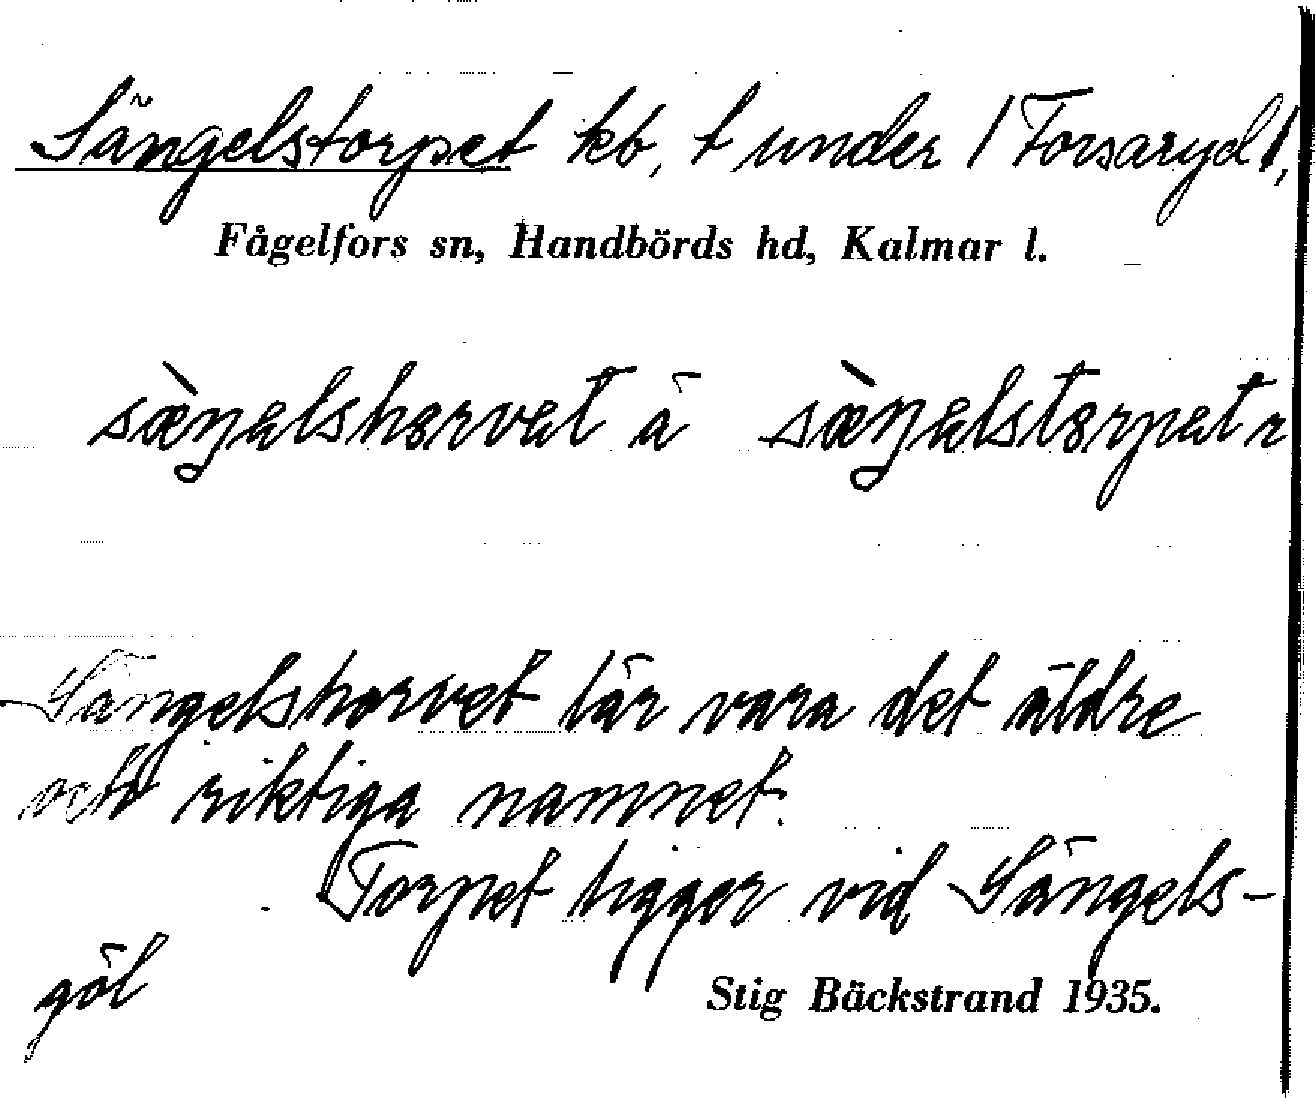 Sängelstorpet kb, t under 1 Forsaryd 1,
Fågelfors sn, Handbörds hd, Kalmar l.
sæ̀ŋəlshərvət ä sæ̀ŋəlstərpət
Sängelshorvet lär vara det äldre
och riktiga namnet.
Torpet ligger vid Sängels-
göl
Stig Bäckstrand 1935.